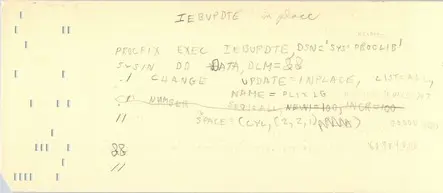 IEBUPDTE in place
PROCFIX EXEC IEBUPDTE, DSN='SYS1.PROCLIB'
SYSIN DD DATA, DLM=&&
./ CHANGE UPDATE=INPLACE, LIST=ALL,
NAME=
./ NUMBER SEQ1=ALL, NEW1=100, INCR=100
// SPACE=(CYL,(2,2,
&&
//